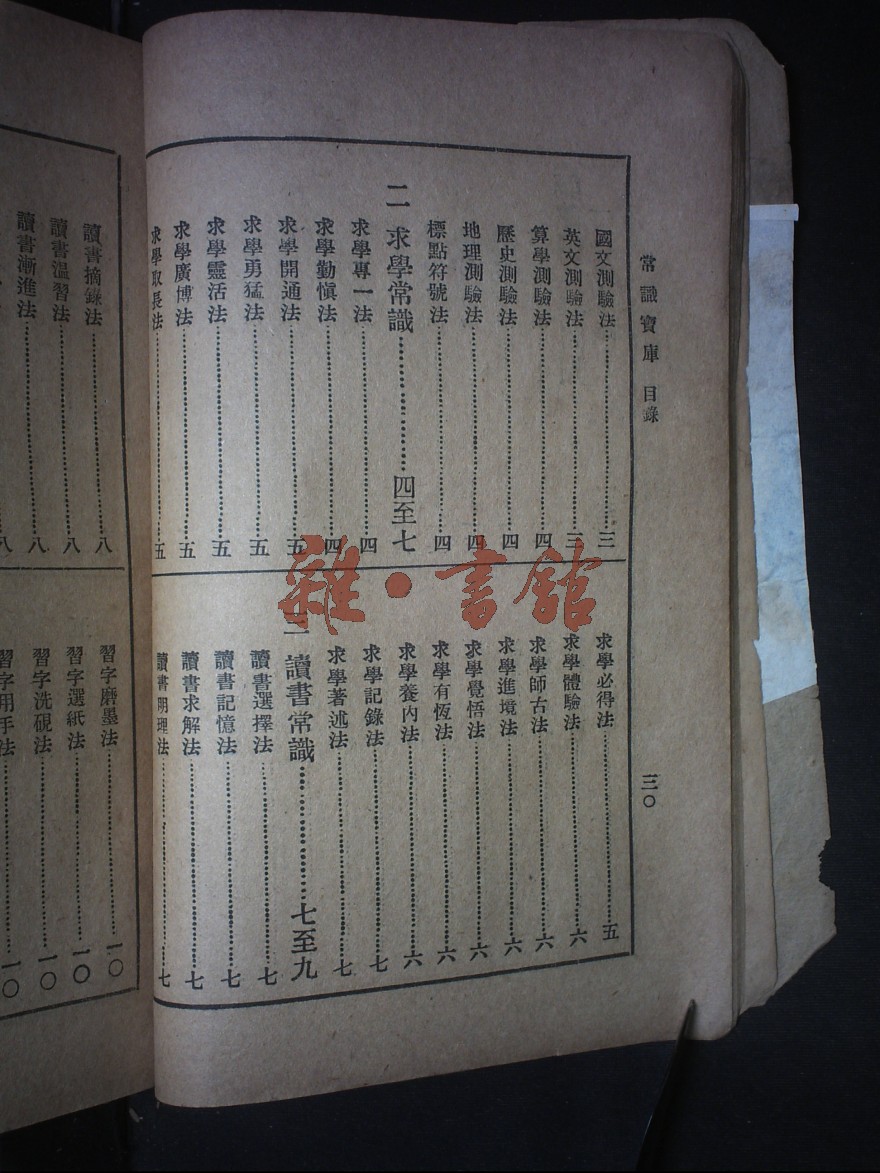 常識寶庫 目錄 三〇
國文測驗法 三
英文測驗法 三
算學測驗法 四
歷史測驗法 四
地理測驗法 四
標點符號法 四
二 求學常識 四至七
求學專一法 四
求學勤慎法 四
求學開通法 五
求學勇猛法 五
求學靈活法 五
求學廣博法 五
求學取長法 五
求學必得法 五
求學體驗法 六
求學師古法 六
求學進境法 六
求學覺悟法 六
求學有恆法 六
求學養內法 六
求學記錄法 七
求學著述法 七
三 讀書常識 七至九
讀書選擇法 七
讀書記憶法 七
讀書求解法 七
讀書明理法 七
讀書摘錄法 八
讀書溫習法 八
讀書漸進法 八
八
習字磨墨法 一〇
習字選紙法 一〇
習字洗硯法 一〇
習字用手法 一〇
雜·書館